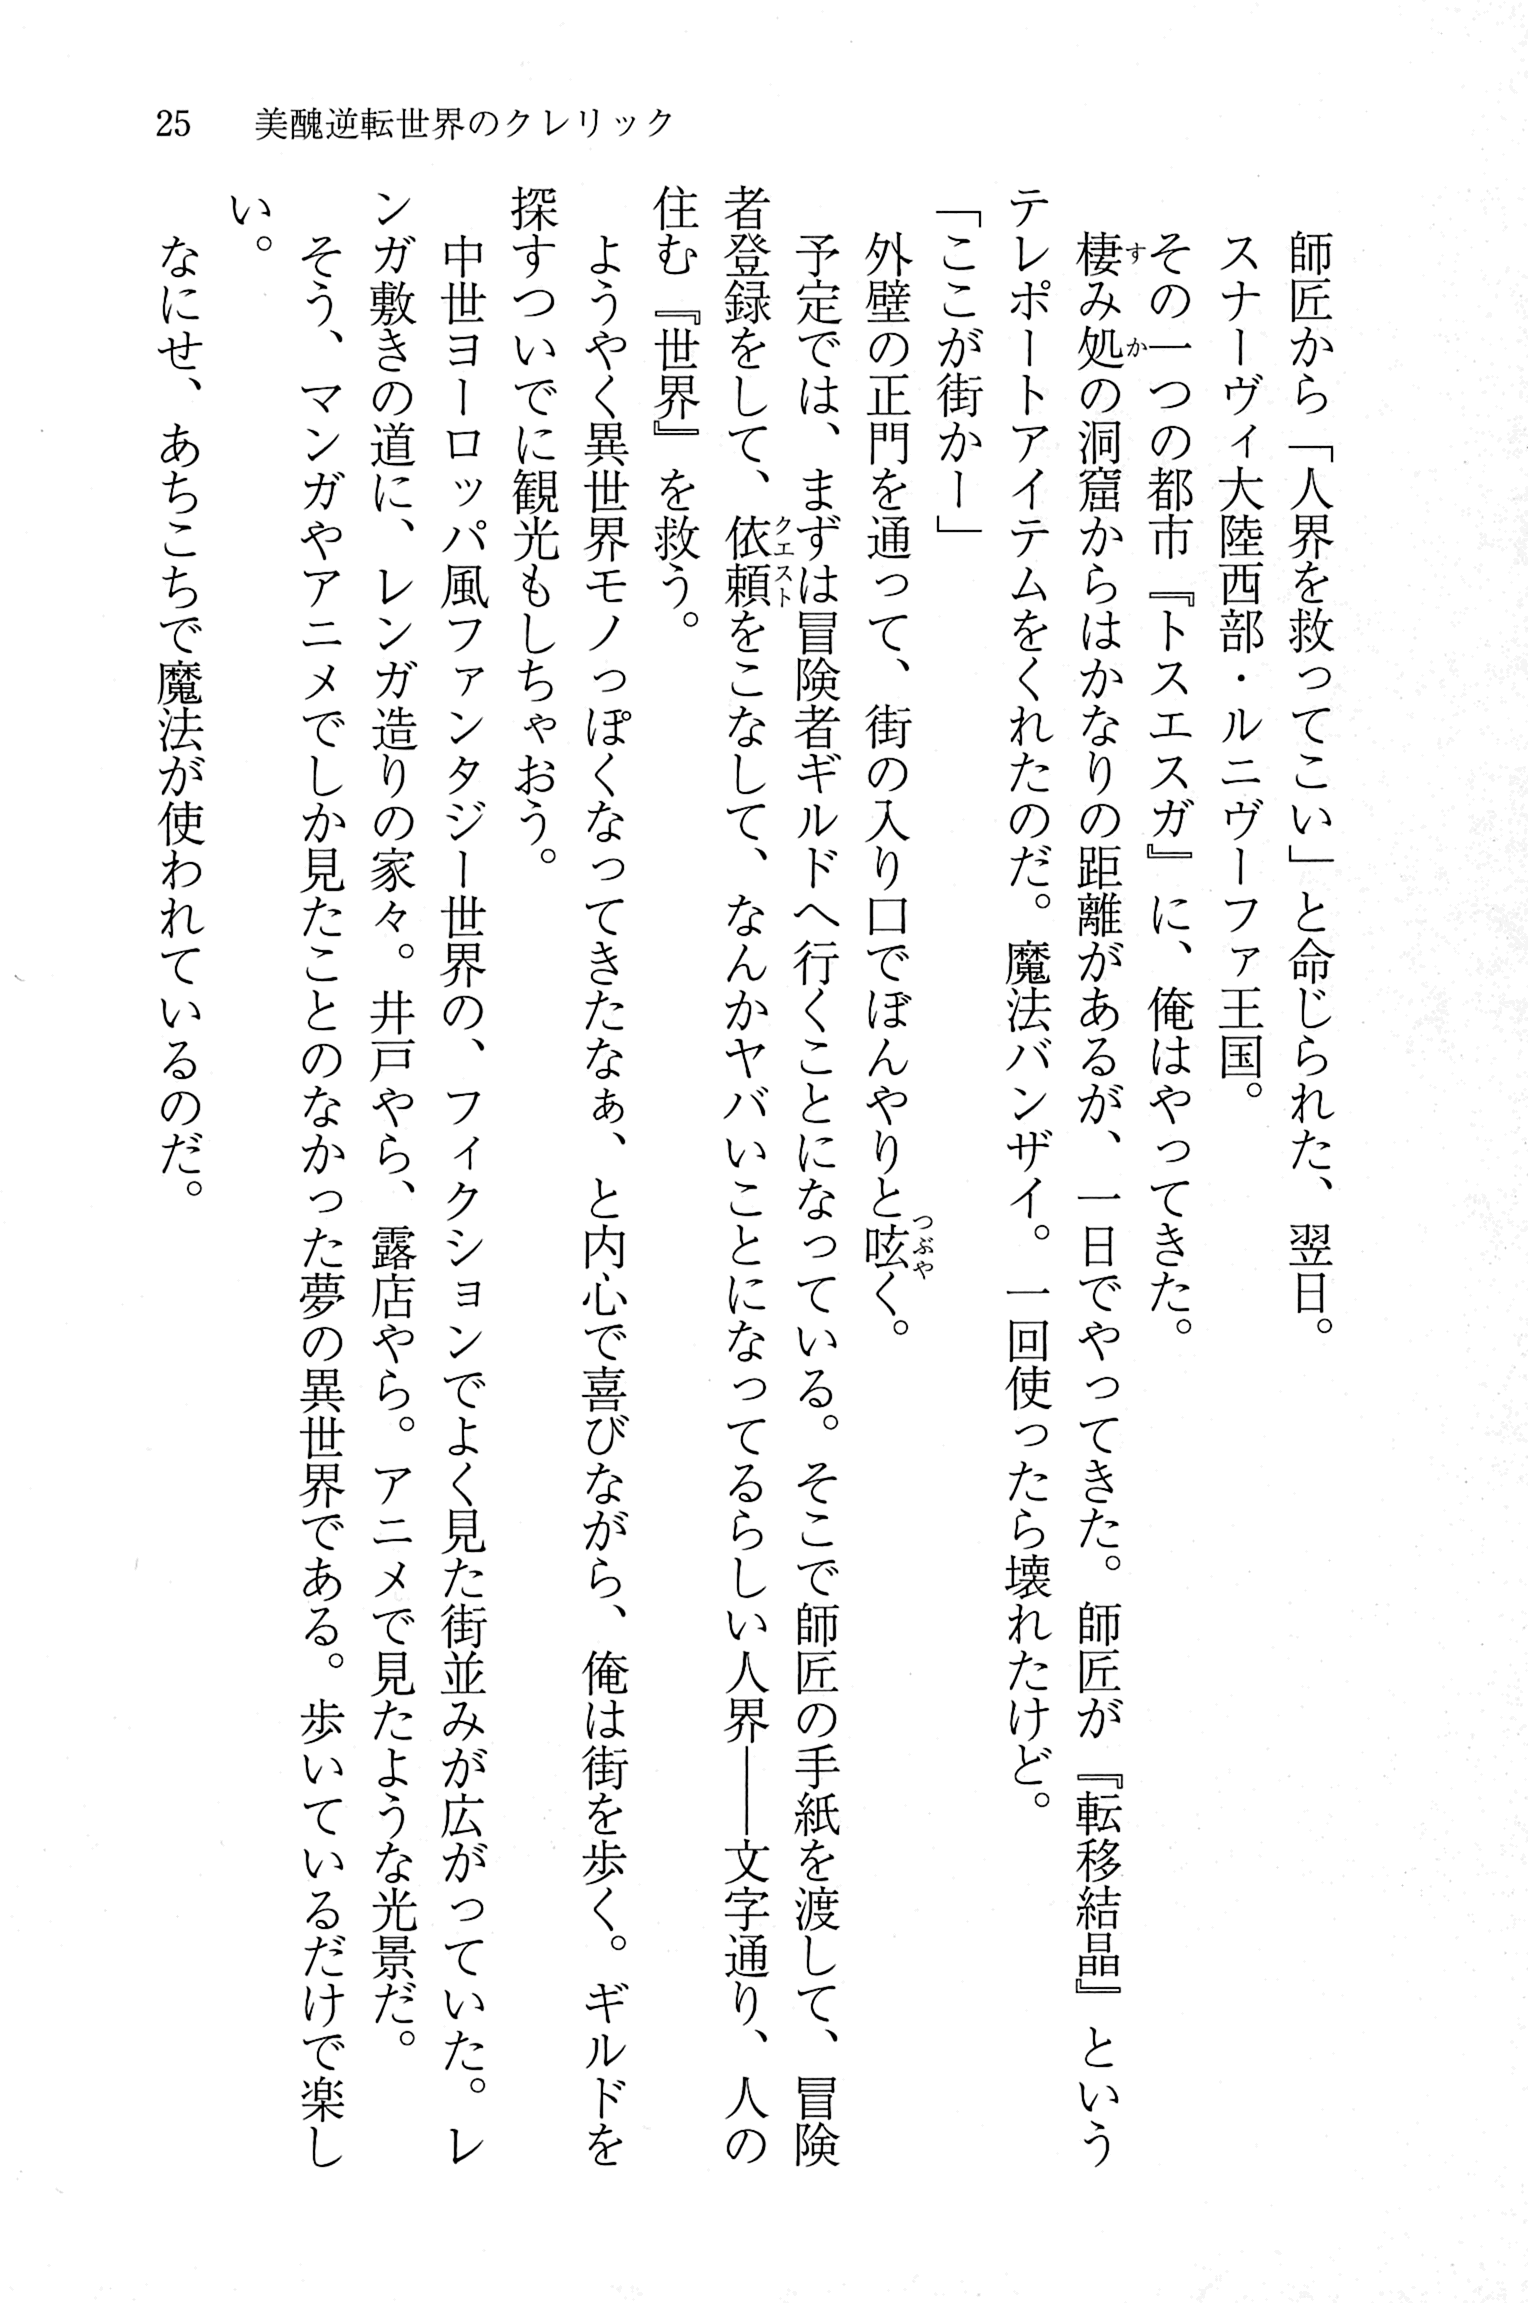 25　美醜逆転世界のクレリック
　師匠から「人界を救ってこい」と命じられた、翌日。
　スナーヴィ大陸西部・ルニヴーファ王国。
　その一つの都市『トスエスガ』に、俺はやってきた。
　棲み処の洞窟からはかなりの距離があるが、一日でやってきた。師匠が『転移結晶』という
テレポートアイテムをくれたのだ。魔法バンザイ。一回使ったら壊れたけど。
「ここが街かー」
　外壁の正門を通って、街の入り口でぼんやりと呟く。
　予定では、まずは冒険者ギルドへ行くことになっている。そこで師匠の手紙を渡して、冒険
者登録をして、依頼をこなして、なんかヤバいことになってるらしい人界――文字通り、人の
住む『世界』を救う。
　ようやく異世界モノっぽくなってきたなぁ、と内心で喜びながら、俺は街を歩く。ギルドを
探すついでに観光もしちゃおう。
　中世ヨーロッパ風ファンタジー世界の、フィクションでよく見た街並みが広がっていた。レ
ンガ敷きの道に、レンガ造りの家々。井戸やら、露店やら。アニメで見たような光景だ。
　そう、マンガやアニメでしか見たことのなかった夢の異世界である。歩いているだけで楽し
い。
　なにせ、あちこちで魔法が使われているのだ。